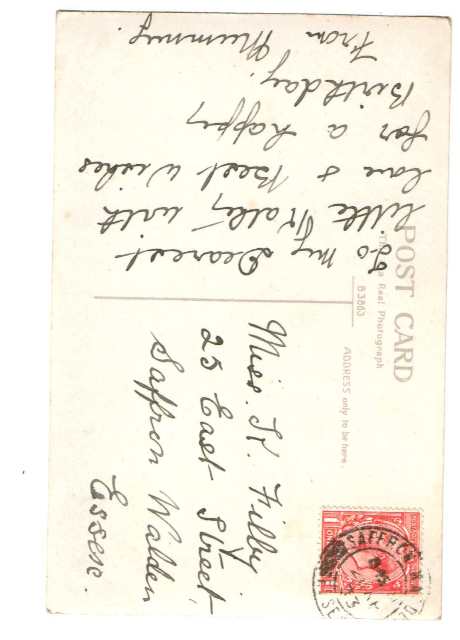 POST CARD
Real Photograph
B3863
ADDRESS only to be here.
To my Dearest
little with
love & Best Wishes
for a happy
Birthday.
From Mummy.
Miss. K. Filby
25 East Street
Saffron Walden
Essex.
SAFFRON